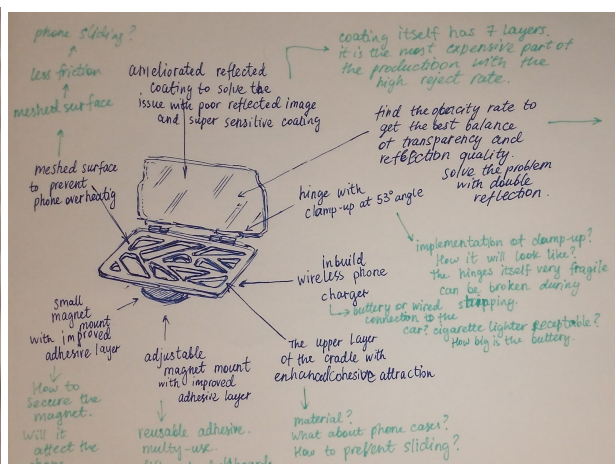 phone sliding?
less friction
meshed surface
meshed surface
to prevent
phone overheatig
ameliorated reflected
coating to solve the
issue with poor reflected image
and super sensitive coating
coating itself has 7 layers.
it is the most expensive part of
the production with the
high reject rate.
find the opacity rate to
get the best balance
of transparency and
reflection quality.
solve the problem
with double
reflection.
hinge with
clamp-up at 53° angle
implementation of clamp-up?
How it will look like?
The hinges itself very fragile
can be broken during
shipping.
inbuild
wireless phone
charger
buttery or wired
connection to the
car? cigarette lighter receptable?
How big is the buttery.
small
magnet
mount
with improved
adhesive layer
How to
secure the
magnet.
Will it
affect the
adjustable
magnet mount
with improved
adhesive layer
reusable adhesive.
multy-use.
The upper layer
of the cradle with
enhanced cohesive attraction
material?
What about phone cases?
How to prevent sliding?